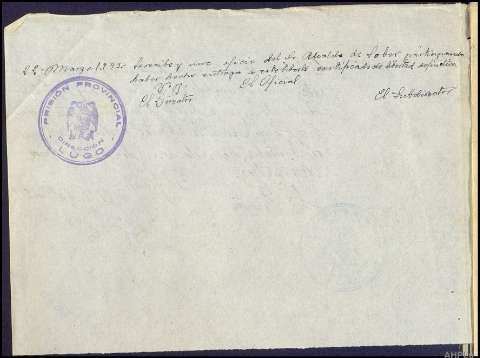 22-Marzo 1.943: Se recibe y une oficio del Sr. Alcalde de Sober participando
haber hecho entrega a este liberto certificado de libertad definitiva
Vº Bº
El Director
El Oficial
El Subdirector
PRISIÓN PROVINCIAL
DIRECCIÓN
LUGO